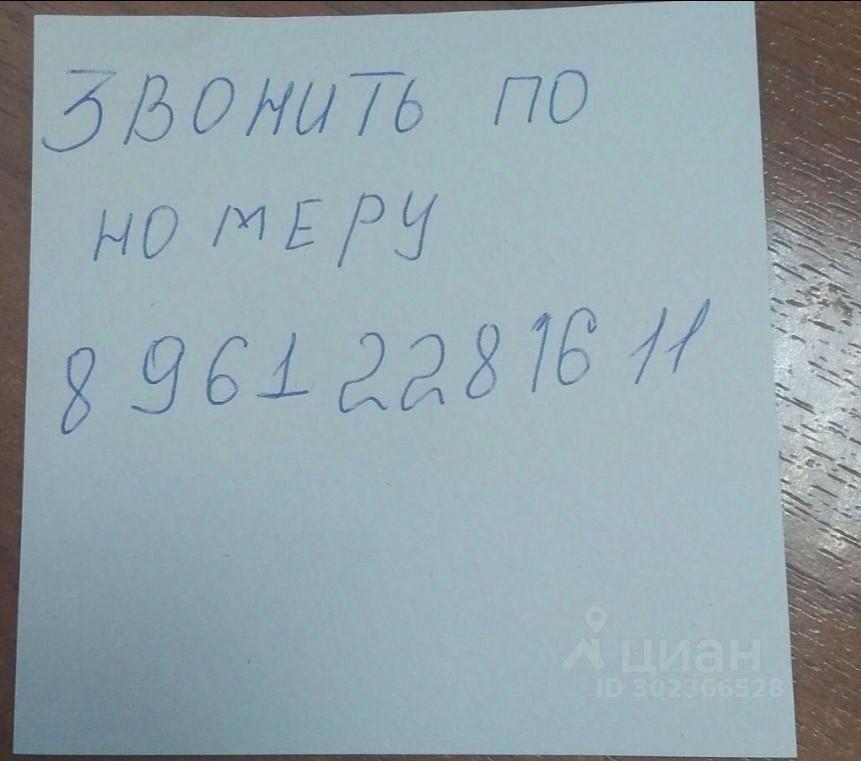 ЗВОНИТЬ ПО
НОМЕРУ
8 961 228 16 11
циан
ID 302366528